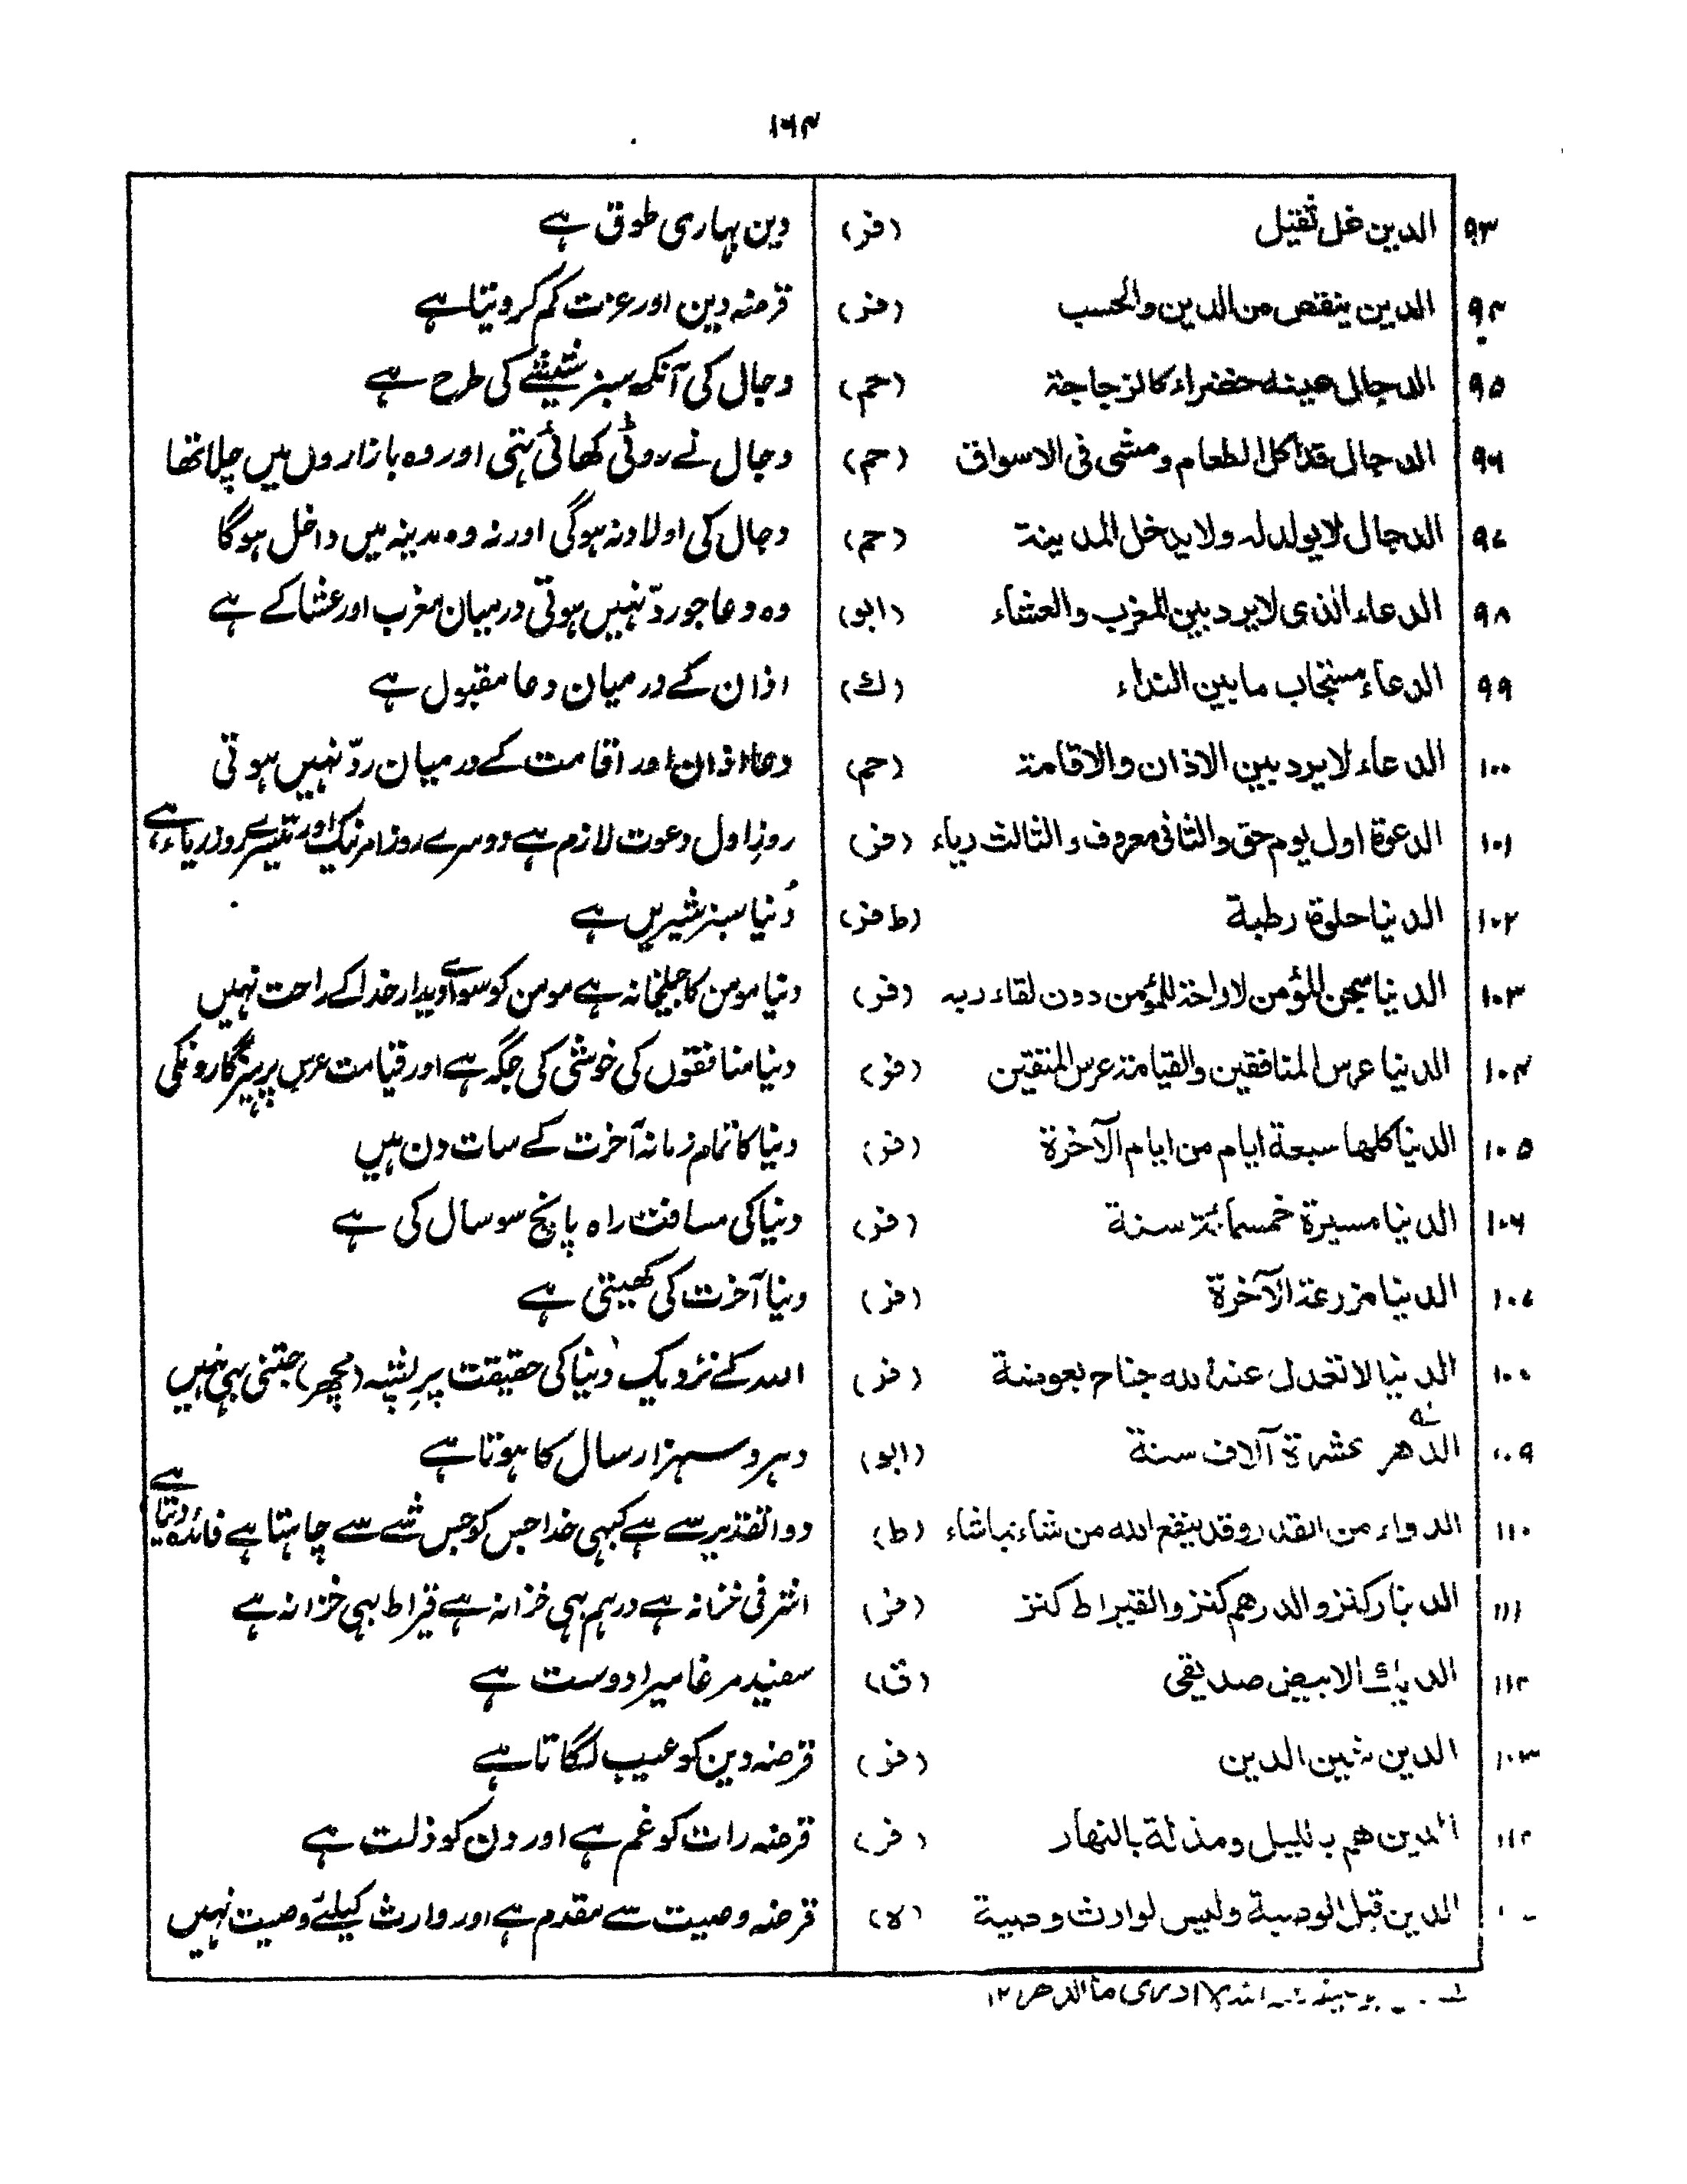 ۱۶۴
۹۳ الدین غل ثقیل (فر) دین بہاری طوق ہے
۹۴ الدین ینقص من الدین والحسب (فر) قرضہ دین اور عزت کم کر دیتا ہے
۹۵ الدجال عینہ خضراء کالزجاجۃ (حم) دجال کی آنکھ سبز شیشے کی طرح ہے
۹۶ الدجال قد اکل الطعام و مشی فی الاسواق (حم) دجال نے روٹی کھائی ہتی اور وہ بازاروں میں چلا تھا
۹۷ الدجال لا یولد لہ ولا یدخل المدینۃ (حم) دجال کی اولاد نہ ہوگی اور نہ وہ مدینہ میں داخل ہوگا
۹۸ الدعاء الذی لا یرد بین المغرب والعشاء (ابو) وہ دعا جو ردّ نہیں ہوتی درمیان مغرب اور عشا کے ہے
۹۹ الدعاء مستجاب ما بین النداء (ك) اذان کے درمیان دعا مقبول ہے
۱۰۰ الدعاء لا یرد بین الاذان والاقامۃ (حم) دعا اذان اور اقامت کے درمیان ردّ نہیں ہوتی
۱۰۱ الدعوۃ اول یوم حق والثانی معروف والثالث ریاء (فر) روزِ اول دعوت لازم ہے دوسرے روز امر نیک اور تیسرے روز ریاء ہے
۱۰۲ الدنیا حلوۃ رطبۃ (ط فر) دُنیا سبز شیریں ہے
۱۰۳ الدنیا سجن المؤمن لا راحۃ للمؤمن دون لقاء ربہ (فر) دنیا مومن کا جیلخانہ ہے مومن کو سوائے دیدار خدا کے راحت نہیں
۱۰۴ الدنیا عرس المنافقین والقیامۃ عرس المتقین (فر) دنیا منافقوں کی خوشی کی جگہ ہے اور قیامت عرس پرہیزگارونکی
۱۰۵ الدنیا کلہا سبعۃ ایام من ایام الآخرۃ (فر) دنیا کا تمام زمانہ آخرت کے سات دن ہیں
۱۰۶ الدنیا مسیرۃ خمسمائۃ سنۃ (فر) دنیا کی مسافت راہ پانچ سو سال کی ہے
۱۰۷ الدنیا مزرعۃ الآخرۃ (فر) دنیا آخرت کی کھیتی ہے
الدنیا لا تعدل عند اللہ جناح بعوضۃ (فر) اللہ کے نزدیک دنیا کی حقیقت پرِ پشہ (مچھر) جتنی بہی نہیں
الدھر عشرۃ آلاف سنۃ (ابو) دہر دس ہزار سال کا ہوتا ہے
۱۱۰ الدواء من القدر وقد ینفع اللہ من شاء بما شاء (ط) دوا تقدیر سے ہے کبہی خدا جس کو جس شے سے چاہتا ہے فائدہ دیتا ہے
۱۱۱ الدینار کنز والدرھم کنز والقیراط کنز (فر) اشرفی خزانہ ہے درہم بہی خزانہ ہے قیراط بہی خزانہ ہے
۱۱۲ الدیك الابیض صدیقی (ق) سفید مرغا میرا دوست ہے
۱۰۳ الدین شین الدین (فر) قرضہ دین کو عیب لگاتا ہے
الدین ھم باللیل ومذلۃ بالنھار (فر) قرضہ رات کو غم ہے اور دن کو ذلت ہے
الدین قبل الوصیۃ ولیس لوارث وصیۃ (لا) قرضہ وصیت سے مقدم ہے اور وارث کیلئے وصیت نہیں
لا ادری ما الدھر ۱۲